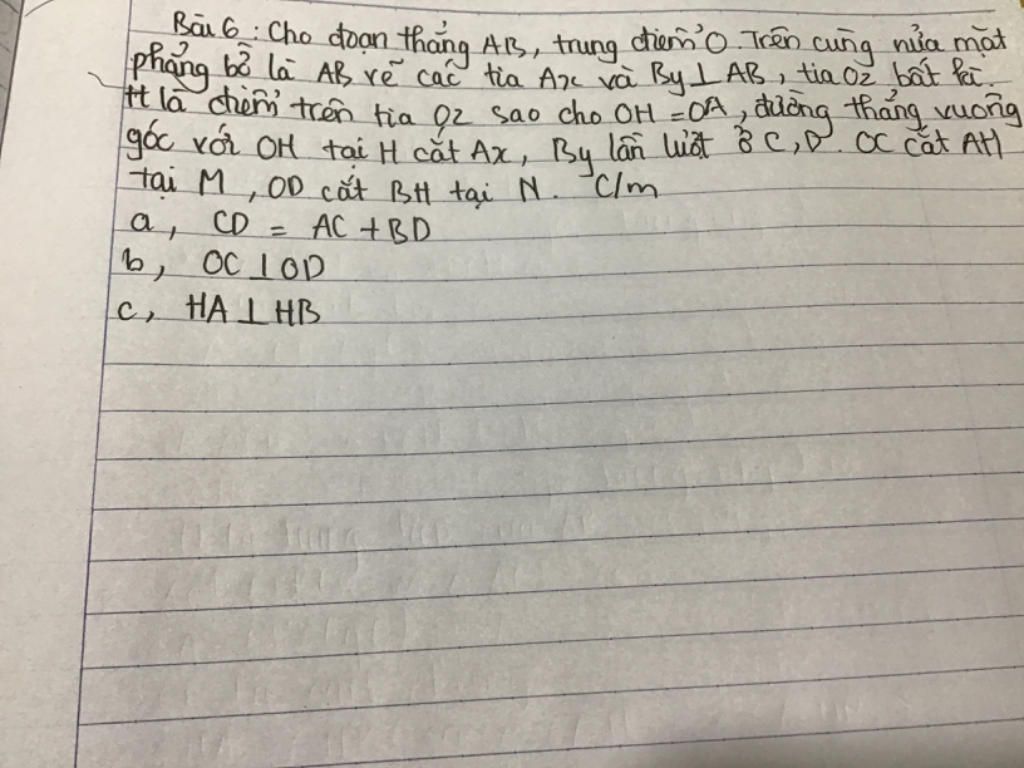 Bài 6: Cho đoạn thẳng AB, trung điểm O. Trên cùng nửa mặt
phẳng bờ là AB vẽ các tia Ax và By ⊥ AB, tia Oz bất kì.
H là điểm trên tia Oz sao cho OH = OA, đường thẳng vuông
góc với OH tại H cắt Ax, By lần lượt ở C, D. OC cắt AH
tại M, OD cắt BH tại N. C/m
a, CD = AC + BD
b, OC ⊥ OD
c, HA ⊥ HB